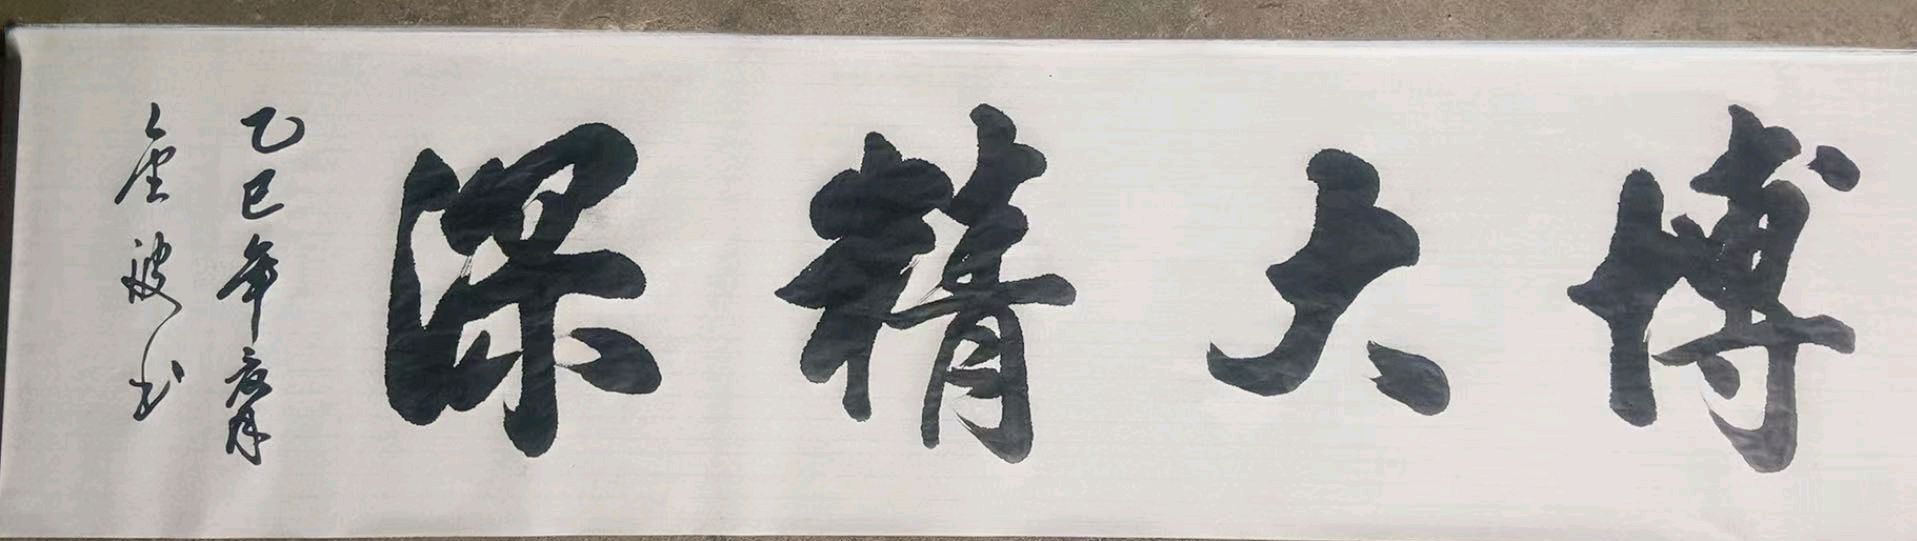 博大精深
乙巳年六月
金波书